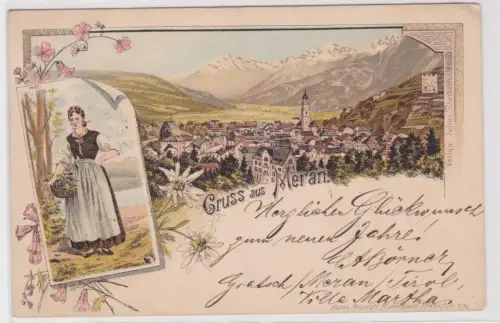 Gruss aus Meran.
Herzlichen Glückwunsch
zum neuen Jahre!
Gratsch/Meran/Tirol,
Villa Martha.